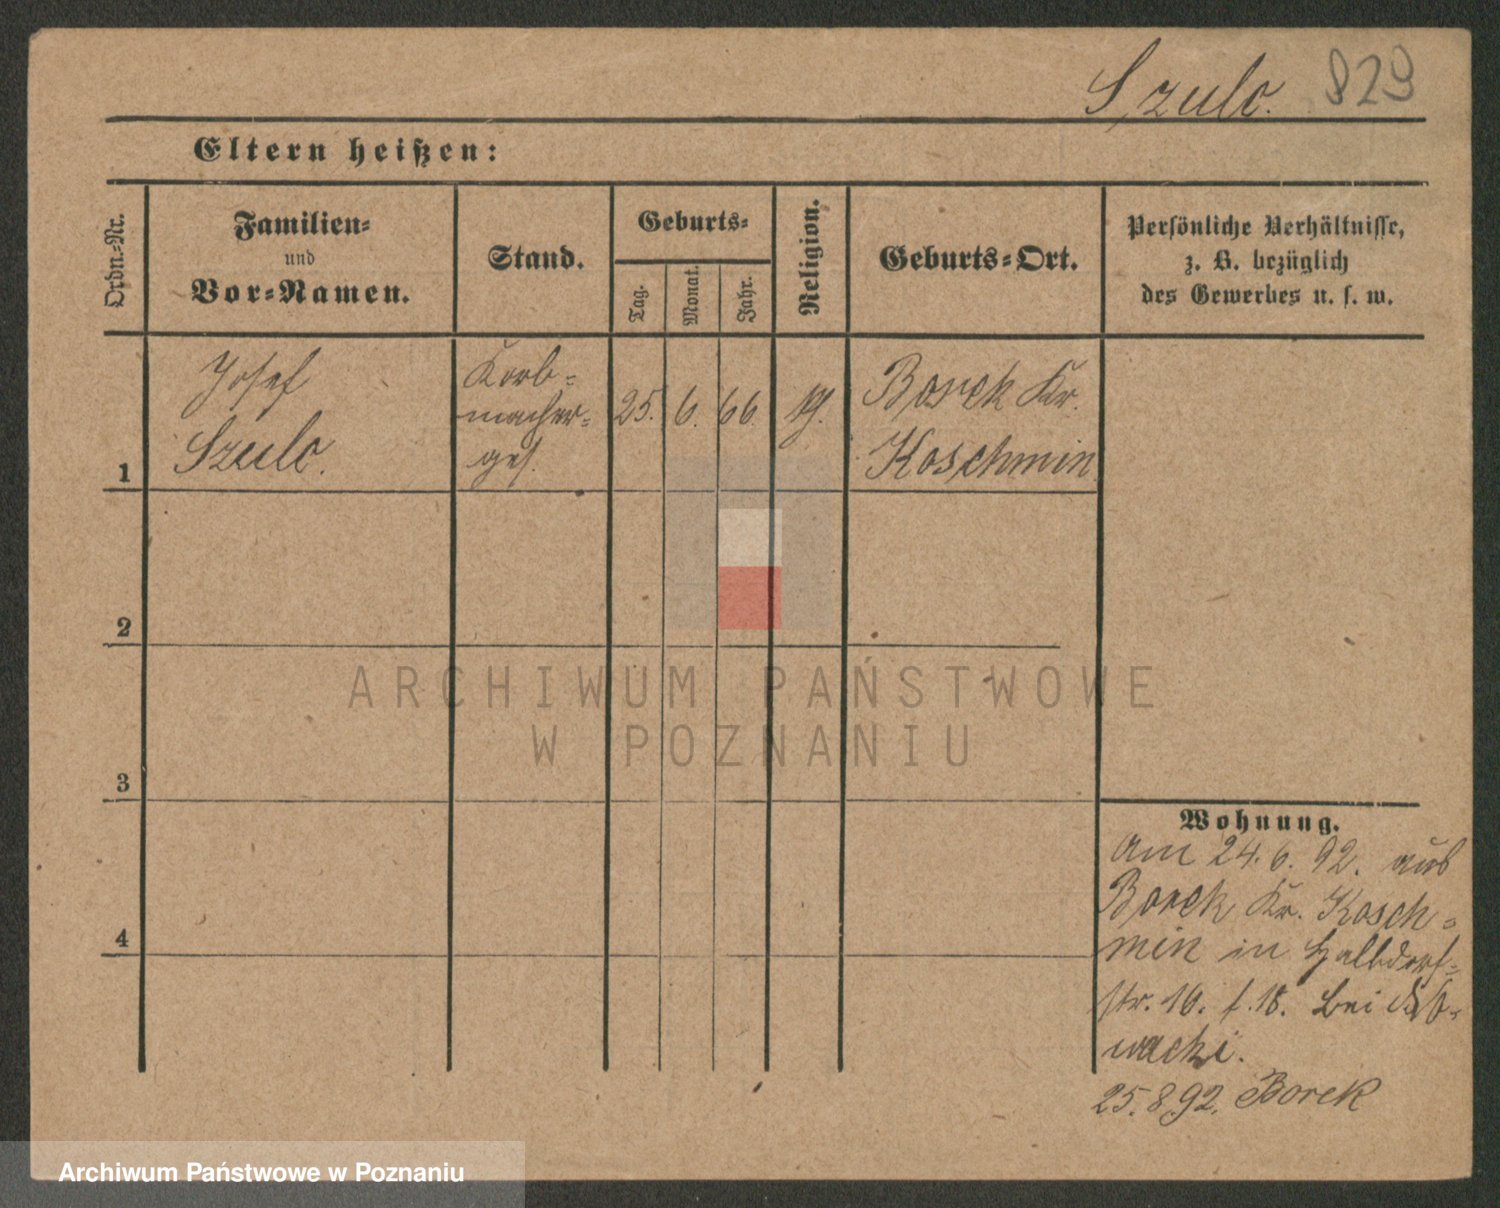 Szulc. 829
Eltern heißen:
Ordn.-Nr.
Familien-
und
Vor-Namen.
Stand.
Geburts-
Tag.
Monat.
Jahr.
Religion.
Geburts-Ort.
Persönliche Verhältnisse,
z. B. bezüglich
des Gewerbes u. s. w.
1
Josef
Szulc.
Korb-
macher-
ges.
25. 6. 66
Borek Kr.
Koschmin
2
ARCHIWUM PAŃSTWOWE
W POZNANIU
3
4
Wohnung.
Am 24. 6. 92. aus
Borek Kr. Kosch-
min in Halbdorf-
str. 16. f. 18. bei
wacki.
25. 8 92. Borek
Archiwum Państwowe w Poznaniu